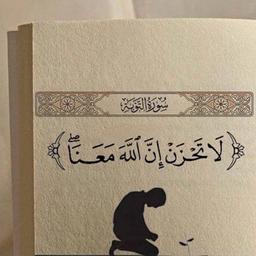 سُورَةُ التَّوْبَةِ
﴿لَا تَحْزَنْ إِنَّ ٱللَّهَ مَعَنَاۖ﴾